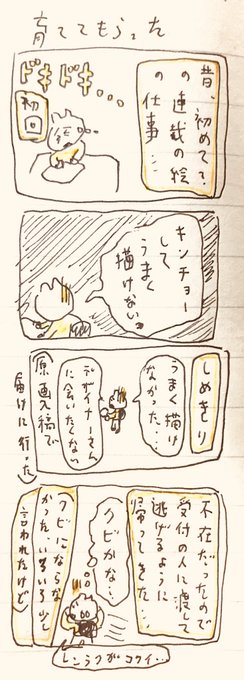 育ててもらった
昔、初めて
の連載の絵
の仕事…
ドキドキ…
初回
キンチョー
して
うまく
描けない。
しめきり
うまく描け
なかった…
デザイナーさん
に会いたくない
原画入稿で
届けに行った
不在だったので
受付の人に渡して
逃げるように
帰ってきた…
クビかな…
クビにならな
かった。いろいろ少し
言われたけど
レンラクがコワイ…